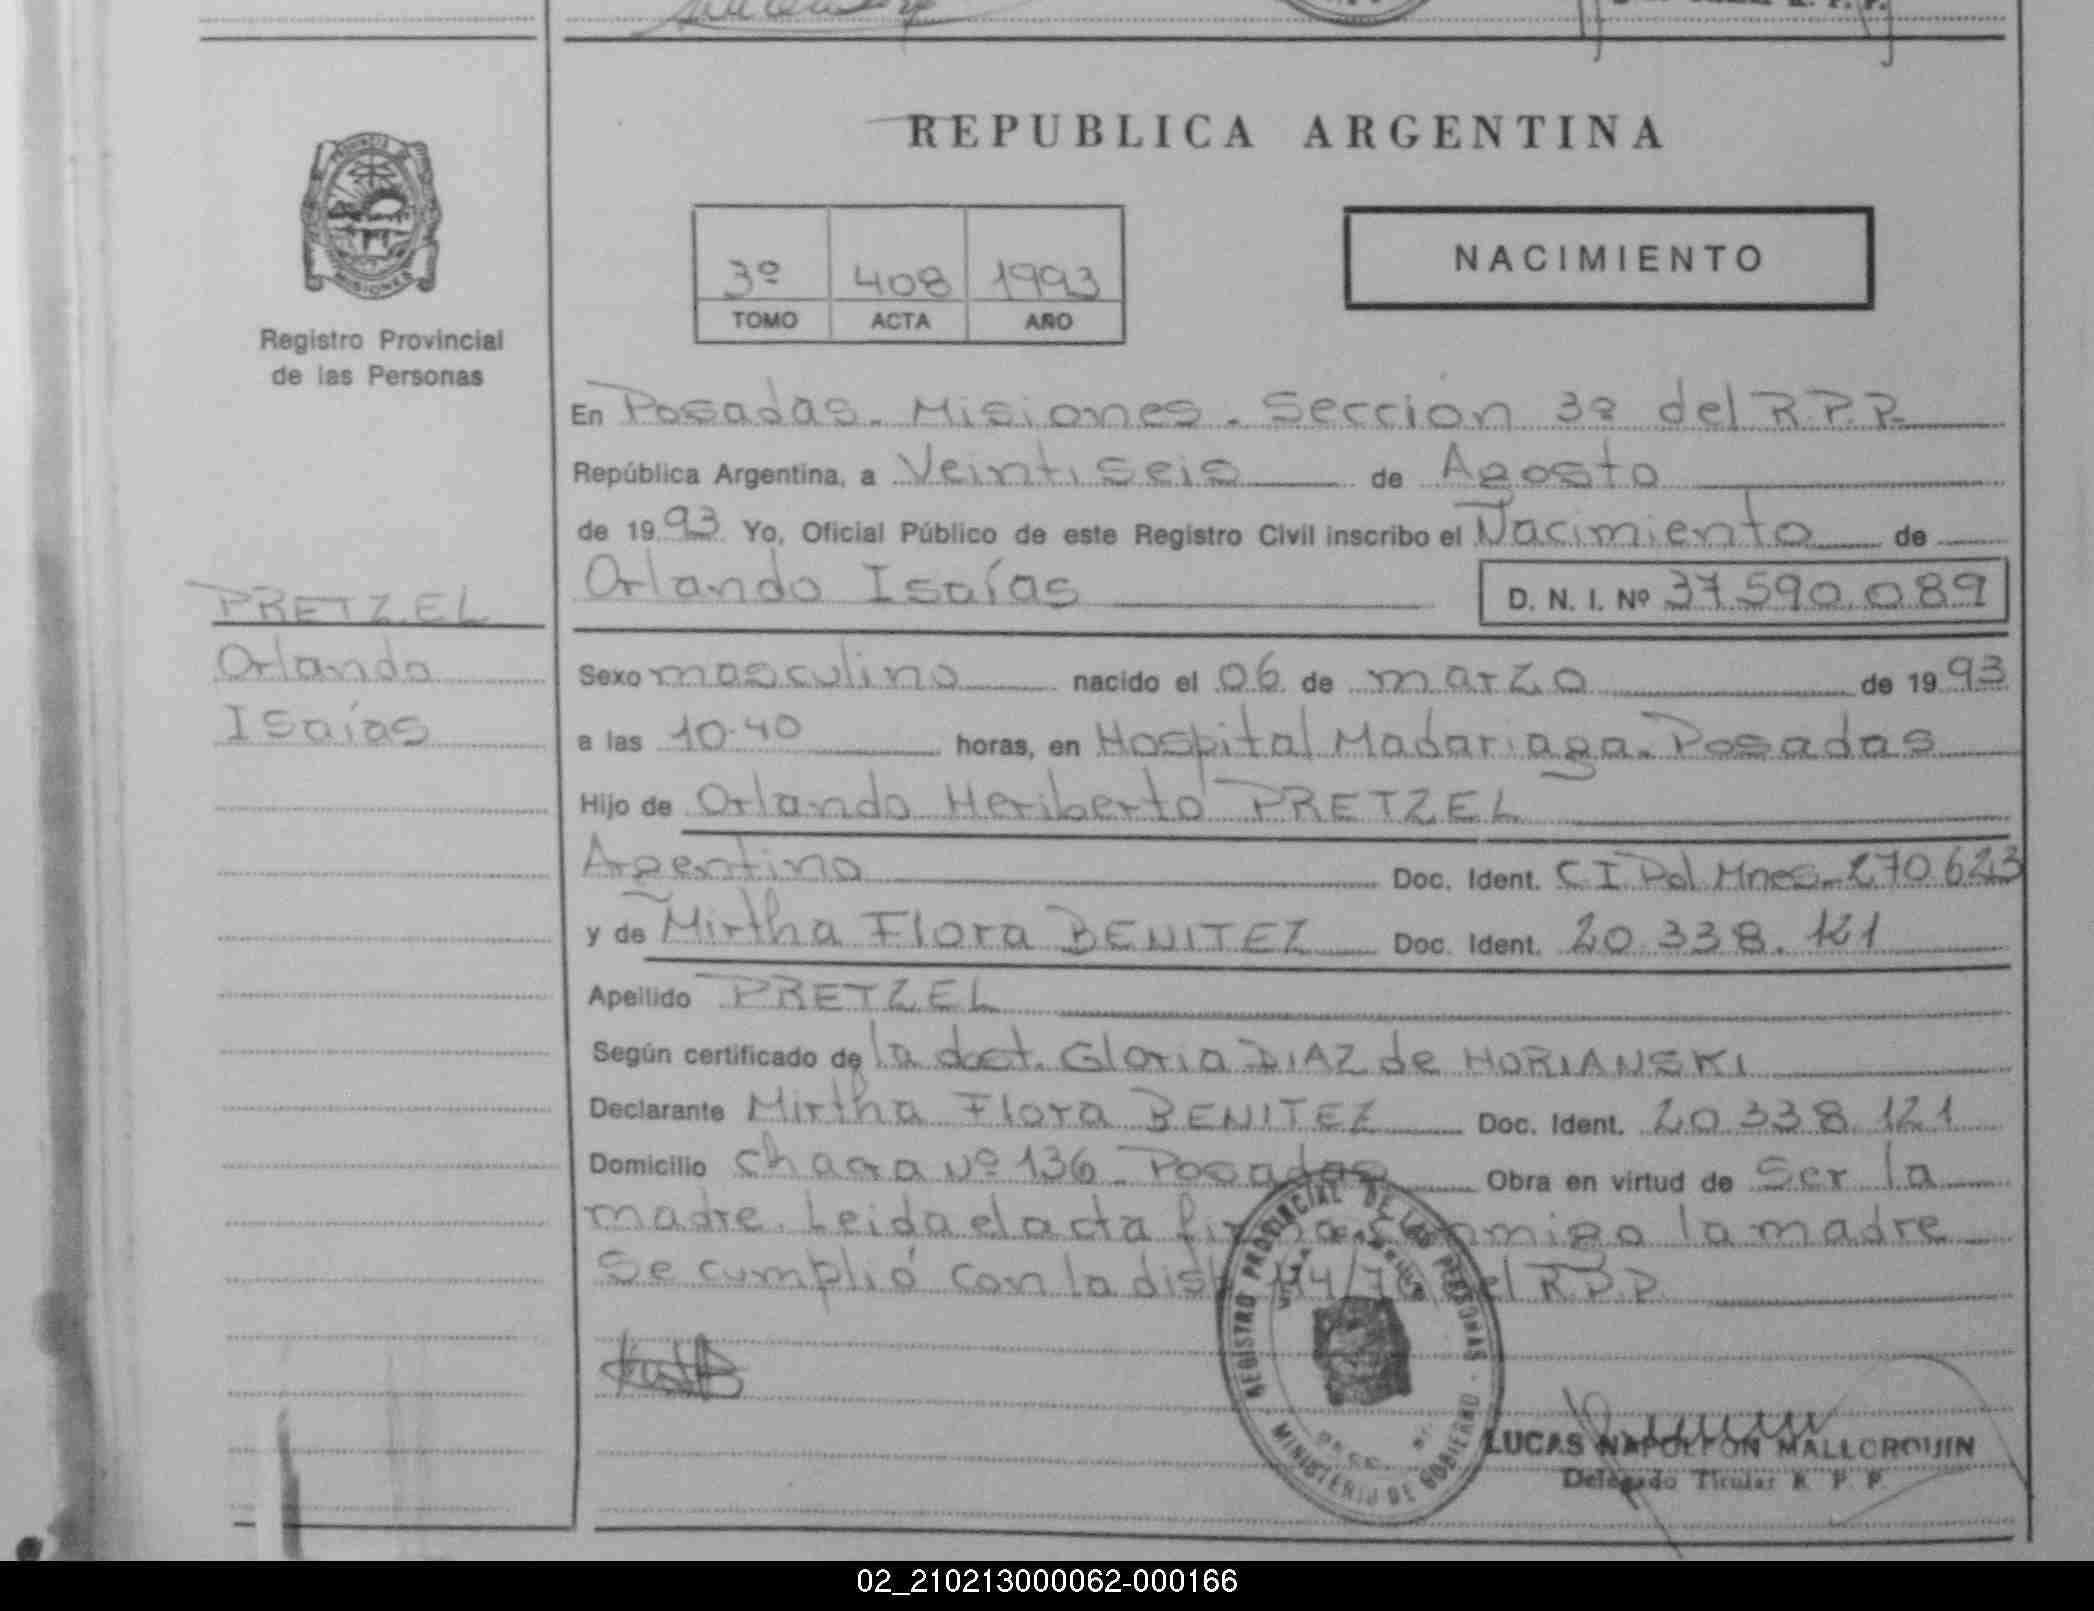 REPUBLICA ARGENTINA
PROVINCIA DE
MISIONES
Registro Provincial
de las Personas
3º 408 1993
TOMO ACTA AÑO
NACIMIENTO
En Posadas. Misiones. Sección 3º del R.P.P.
República Argentina, a Veintiseis de Agosto
de 1993 Yo, Oficial Público de este Registro Civil inscribo el Nacimiento de
Orlando Isaías D. N. I. Nº 37.590.089
PRETZEL
Orlando
Isaías
Sexo masculino nacido el 06 de marzo de 1993
a las 10.40 horas, en Hospital Madariaga. Posadas
Hijo de Orlando Heriberto PRETZEL
Argentino Doc. Ident. C I Pol Mnes. 270.623
y de Mirtha Flora BENITEZ Doc. Ident. 20.338.121
Apellido PRETZEL
Según certificado de la doct. Gloria DIAZ de MORIANSKI
Declarante Mirtha Flora BENITEZ Doc. Ident. 20.338.121
Domicilio chacra Nº 136. Posadas Obra en virtud de Ser la
madre. Leida el acta firma conmigo la madre
Se cumplió con la disp. /76 del R.P.P.
REGISTRO PROVINCIAL DE LAS PERSONAS
MINISTERIO DE GOBIERNO
LUCAS NAPOLEON MALLORQUIN
Delegado Titular R. P. P.
02_210213000062-000166